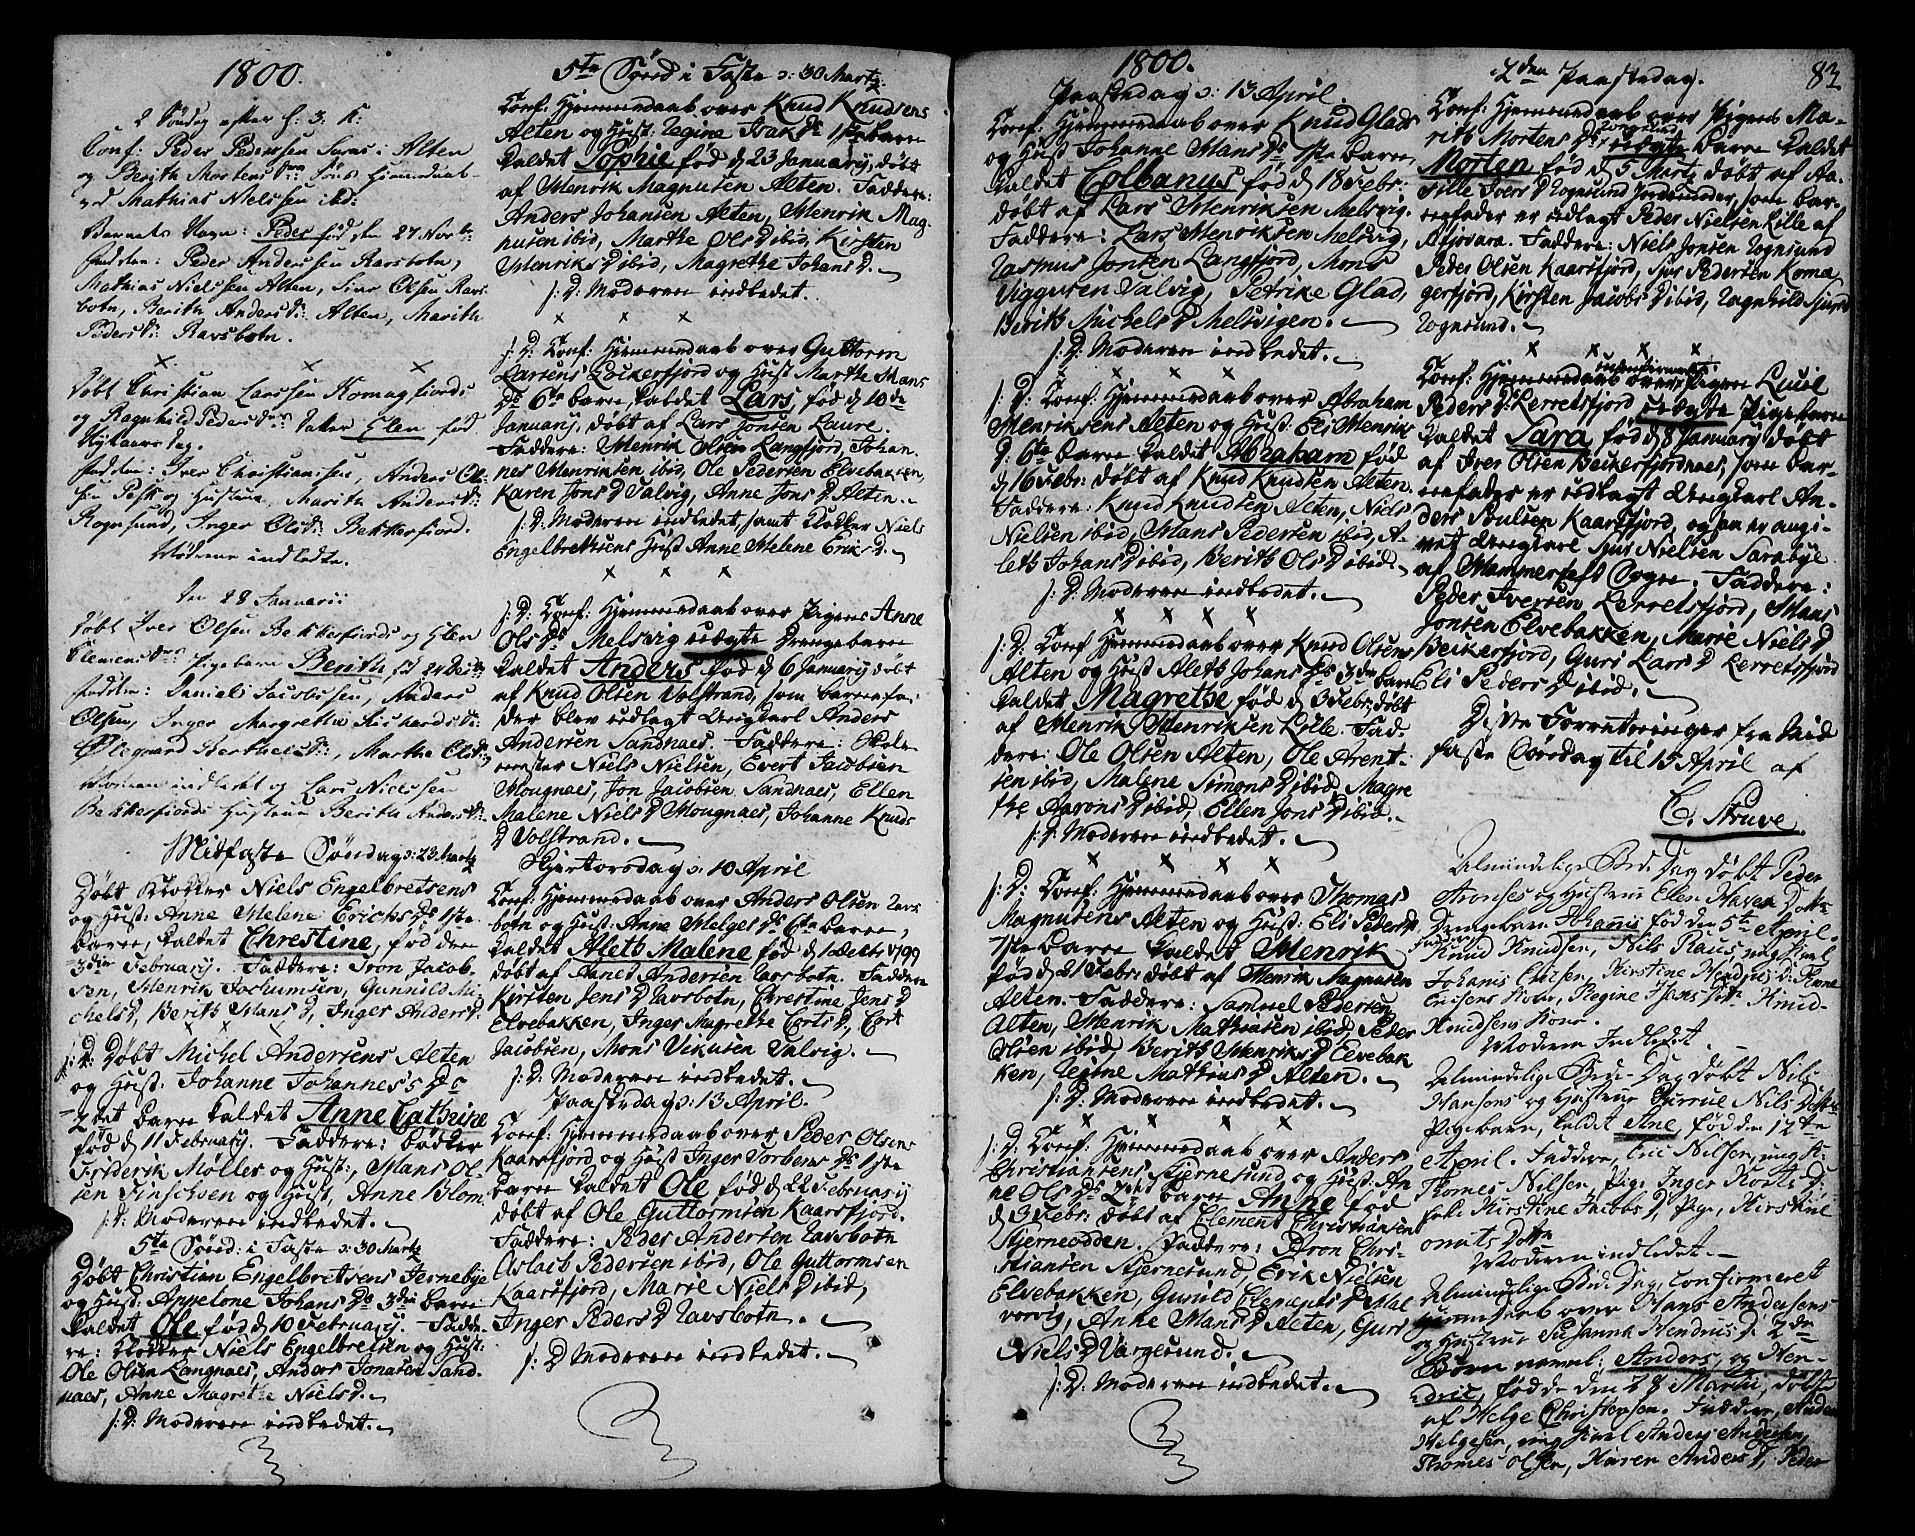 1800.
2 Søndag efter h: 3. K:
Conf: Peder Pedersen Saras i Alten
og Berith Mortensd. Søns hiemmedaab
ved Mathias Nielsen ibd:
Barnets Navn: Peder fød den 27 Novbr.
Faddere: Peder Andersen Rafsbotn,
Mathias Nielsen Alten, Siur Olsen Ravs-
botn, Berith Andersd: Alten, Marith
Pedersd: Ravsbotn.
Døbt Christian Larssen Komagfiords
og Ragnhild Pedersd. Datter Elen fød
Nytaarsdag.
Faddere: Iver Christiansen, Anders Ol-
sen og Hustrue, Marith Andersd:
Rognsund, Inger Olsd: Bekkerfiord.
Moderen indledte.
Den 28 Januarii
Døbt Iver Olsen Bekkerfiords og Elen
Clemensd. Pigebarn Berith, fød 24 Decbr
Faddere: Daniel Jacobsen, Anders
Olsen, Inger Margrethe Richardsd:
Øllegaard Berthelsd:, Marthe Olsd:
Moderen indledet og Lars Nielsen
Bekkerfiords Hustrue Berith Andersd:
Midfaste Søndag ɔ: 23 Martz
Døbt Klokker Niels Engelbretsens
og Hust: Anne Helene Erichs Ds 1ste
barn, kaldet Chrestine, fød den
3die February. Faddere: Iron Jacob-
sen, Henrik Jochumsen, Gunnild Mi-
chels D, Berith Hans D, Inger Anders D.
x x x
/: D: Døbt Michel Andersens Alten
og Hust: Johanne Johannes's Ds
2det barn kaldet Anne Cathrine
fød d 11 February. Faddere: bødker
Friderik Møller og Hust:, Hans Ol-
sen Finschoen og Hust, Anne Blom
/: D: Moderen indledet.
5te Sønd: i Faste ɔ: 30 Martz
Døbt Christian Engelbretsens Jernebye
og Hust: Appelone Johans Ds 3die barn
kaldet Ole fød d 10 February. Fadde-
re: Klokker Niels Engelbretsen og Hust:
Ole Olsen Langnaes, Anders Jonasen Sand-
naes, Anne Magrethe Niels D.
/: D: Moderen indledet.
5te Sønd i Faste ɔ: 30 Martz
Conf: Hjemmedaab over Knud Knudsens
Alten og Hust: Regine Isak Ds 1ste barn
kaldet Sophie fød d 23 January, døbt
af Henrik Magnusen Alten. Faddere:
Anders Johansen Alten, Henrik Mag-
nusen ibid, Marthe Ols D ibid, Kirsten
Henriks D ibid, Magrethe Johans D.
/: D: Moderen indledet.
x x x
/: D: Conf: Hjemmedaab over Guttorm
Larsens Lockerfjord og Hust Marthe Hans
Ds 6te barn kaldet Lars, fød d 10de
January, døbt af Lars Jonsen Laure.
Faddere: Henrik Olsen Langfjord, Johan-
nes Henriksen ibid, Ole Pedersen Elvebakken,
Karen Jons D Talvig, Anne Jons D Alten.
/: D: Moderen indledet, samt Klokker Niels
Engelbretsens Hust Anne Helene Eriks D.
x x x
/: D: Conf: Hjemmedaab over Pigens Anne
Ols Ds Melsvig uægte Drengebarn
kaldet Anders fød d 6 January døbt
af Knud Olsen Volstrand, som barnefa-
der blev udlagt Ungkarl Anders
Andersen Sandnaes. Faddere: Skole-
mester Niels Nielsen, Evert Jacobsen
Mougnaes, Jon Jacobsen Sandnaes, Ellen
Malene Niels D Mougnaes, Johanne Knuds
D Volstrand.
Skjertorsdag ɔ: 10 April
Conf: Hjemmedaab over Anders Olsen Ravs-
botn og Hust: Anne Helges Ds 6te barn,
kaldet Aleth Malene fød d 1 Decbr 1799
døbt af Aanet Andersen Ravsbotn. Faddere
Kirsten Jens D Ravsbotn, Chrestine Jens D
Elvebakken, Inger Magrethe Corts D, Cort
Jacobsen, Mons Vikusen Talvig.
/: D: Moderen indledet.
Paaskedag ɔ: 13 April.
Conf: Hjemmedaab over Peder Olsens
Kaarsfjord og Hust Inger Torbens Ds 1ste
barn kaldet Ole fød d 22 February
døbt af Ole Guttormsen Kaarsfjord.
Faddere: Peder Andersen Ravsbotn
Aslach Pedersen ibid, Ole Guttormsen
Kaarsfjord, Marie Niels D ibid,
Inger Peders D Ravsbotn.
/: D Moderen indledet.
1800.
Paaskedag ɔ: 13 April.
Conf: Hjemmedaab over Knud Glads
og Hust Johanne Hans Ds 1ste barn,
kaldet Colbanus fød d 18 Febr:
døbt af Lars Henriksen Melsvig.
Faddere: Lars Henriksen Melsvig,
Rasmus Jonsen Langfjord, Mons
Viggusen Talvig, Petrike Glad,
Berith Michels D Melsvigen.
/: D: Moderen indledet.
x x x x
/: D: Conf: Hjemmedaab over Abraham
Henriksens Alten og Hust: Eli Henrik
D. 6te barn kaldet Abraham fød
d 16 Febr: døbt af Knud Knudsen Alten.
Faddere: Knud Knudsen Alten, Niels
Nielsen ibid, Hans Pedersen ibid, A-
leth Johans D ibid, Berith Ols D ibid.
/: D: Moderen indledet.
x x x x
/: D: Conf Hjemmedaab over Knud Olsens
Alten og Hust Aleth Johans Ds 3die barn
kaldet Magrethe fød d 3 Febr: døbt
af Henrik Henriksen Lille. Fad-
dere: Ole Olsen Alten, Ole Arent-
sen ibid, Malene Simons D ibid, Magre
the Aarons D ibid, Ellen Jons D ibid.
/: D: Moderen indledet.
x x x x
/: D: Conf: Hjemmedaab over Thomas
Magnusens Alten og Hust: Eli Peders D
7de barn kaldet Henrik
fød d 21 Febr: døbt af Henrik Magnusen
Alten. Faddere: Samuel Pedersen
Alten, Henrik Mathiasen ibid, Peder
Olsen ibid, Berith Henriks D Elvebak
ken, Regine Mathias D Alten.
/: D: Moderen indledet.
x x x x
/: D: Conf: Hjemmedaab over Anders
Christiansens Stjernesund og Hust: An
ne Ols Ds 2det barn Anne fød
d 3 Febr: døbt af Clement Christiansen
Stjerneodden. Faddere: Aron Chri-
stiansen Stjernesund, Erik Nielsen
Elvebakken, Gunild Clements D Mæl
vog, Anne Hans D Alten, Guri
Niels D Vargesund.
/: D: Moderen indledet.
2den Paaskedag.
83
Conf: Hjemmedaab over Pigens Ma-
rith Mortens Ds Rognsund uægte barn kaldet
Morten fød d 5 Martz døbt af Aa-
sille Ivers D Rognsund Jordemoder, som bar-
nefader er udlagt Peder Nielsen Lille af
Afjovara. Faddere: Niels Jonsen Rognsund
Peder Olsen Kaarsfjord, Sjur Pedersen Koma
gerfjord, Kirsten Jacobs D ibid, Rognhild Sjurs D
Rognsund.
x x x x
Conf: Hjemmedaab over Pigen Lucil
Peders D. Lerretsfjord uægte Pigebarn
kaldet Sara fød d 8 January døbt
af Iver Olsen Beckerfjordnaes, som bar-
nefader er udlagt Ungkarl An-
ders Poulsen Kaarsfjord, og nu er angi-
vet Ungkarl Sjur Nielsen Sarabye
af Hammerfest Sogn. Faddere:
Peder Iversen Lerretsfjord, Hans
Jonsen Elvebakken, Marie Niels D
Beckerfjord, Guri Lars D Lerretsfjord
Eli Peders D ibid.
Disse Forretninger fra Mid
faste Søndag til 15 April af
C. Struve.
Almindelige Bed. Dag døbt Peder
Aronses og Hustrue Elen Hansen Dotts
Drengebarn Johannes fød den 5te April.
Faddere Knud Knudsen, Nils Klaus, ung karl
Johanis Ericsen, Kirstine Hendris D: Anne
Ericsens Kone, Regine Isens Dotter Knud
Knudsens Kone.
Moderen Indledet.
Almindelige Bede-Dag døbt Nils
Hansens og Hustrue Guruue Nils Dotts
Pigebarn, kaldet Ane, fød den 12te
April. Faddere, Eric Nilsen, ung k.
Thomes Nilsen, Pige Inger Korts D:
Kirstine Jacobs D, Pige, Kirstine
onats Dotts
Moderen indledet.
Almindelige Bed. Dag, Confirmeret
hjemedaab over Hans Andersens
og Hustrue Susanna Hendrics D: 2de
Børn navnl: Anders, og Hen-
dric, fødde den 28 Martii, døbt
af Helge Christensen. Faddere, Anders
Helgesen, ung karl Anders Andersen,
Thomes Olsen, Karen Anders D, Peder